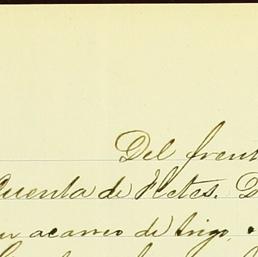 Del frent
Cuenta de Fletes. D
acarreo de trigo,